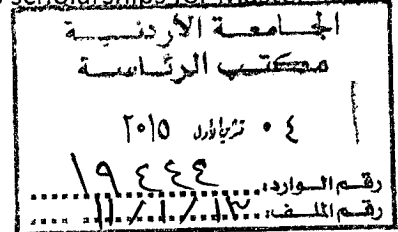 الجامعة الأردنية
مكتب الرئاسة
٠٤ تشرين الأول ٢٠١٥
رقم الوارد: ١٩٤٤٤
رقم الملف: ١٣/١/١١